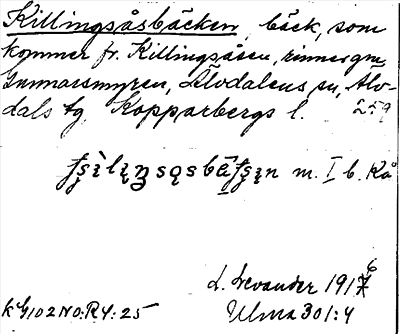 Killingsåsbäcken, bäck, som
kommer fr. Killingsåsen, rinner gm
Gunnarsmyren, Älvdalens sn, Älv-
dals tg Kopparbergs l. 259
m. I b. Kå
L. Levander 1916
K G102 NO:R4:25 Ulma 301:4